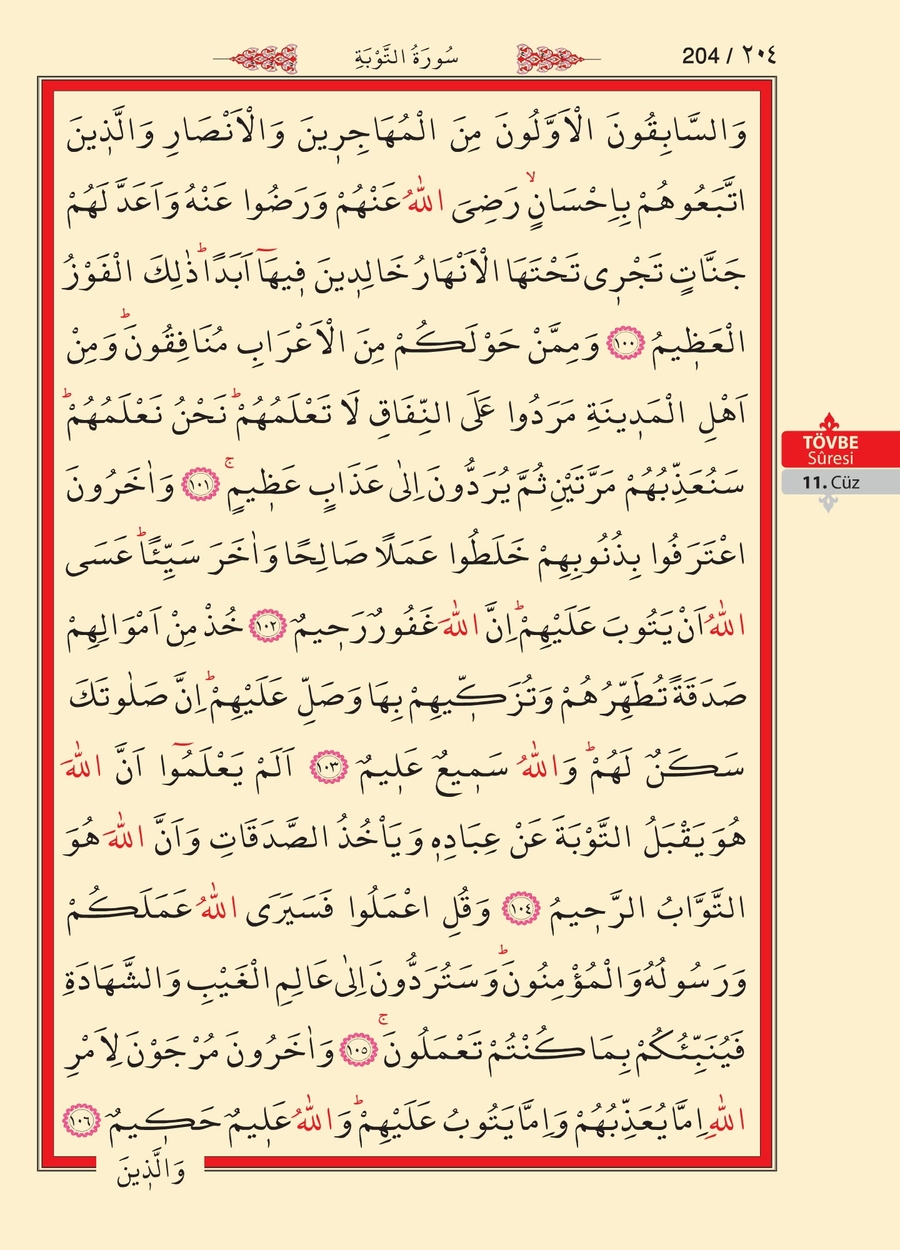 سُورَةُ التَّوْبَةِ
204 / ٢٠٤
وَالسَّابِقُونَ الْاَوَّلُونَ مِنَ الْمُهَاجِر۪ينَ وَالْاَنْصَارِ وَالَّذ۪ينَ
اتَّبَعُوهُمْ بِاِحْسَانٍۙ رَضِيَ اللّٰهُ عَنْهُمْ وَرَضُوا عَنْهُ وَاَعَدَّ لَهُمْ
جَنَّاتٍ تَجْر۪ي تَحْتَهَا الْاَنْهَارُ خَالِد۪ينَ ف۪يهَٓا اَبَدًاۜ ذٰلِكَ الْفَوْزُ
الْعَظ۪يمُ ﴿١٠٠﴾ وَمِمَّنْ حَوْلَكُمْ مِنَ الْاَعْرَابِ مُنَافِقُونَۜ وَمِنْ
اَهْلِ الْمَد۪ينَةِ مَرَدُوا عَلَى النِّفَاقِ لَا تَعْلَمُهُمْۜ نَحْنُ نَعْلَمُهُمْۜ
سَنُعَذِّبُهُمْ مَرَّتَيْنِ ثُمَّ يُرَدُّونَ اِلٰى عَذَابٍ عَظ۪يمٍۚ ﴿١٠١﴾ وَاٰخَرُونَ
اعْتَرَفُوا بِذُنُوبِهِمْ خَلَطُوا عَمَلًا صَالِحًا وَاٰخَرَ سَيِّئًاۜ عَسَى
اللّٰهُ اَنْ يَتُوبَ عَلَيْهِمْۜ اِنَّ اللّٰهَ غَفُورٌ رَح۪يمٌ ﴿١٠٢﴾ خُذْ مِنْ اَمْوَالِهِمْ
صَدَقَةً تُطَهِّرُهُمْ وَتُزَكّ۪يهِمْ بِهَا وَصَلِّ عَلَيْهِمْۜ اِنَّ صَلٰوتَكَ
سَكَنٌ لَهُمْۜ وَاللّٰهُ سَم۪يعٌ عَل۪يمٌ ﴿١٠٣﴾ اَلَمْ يَعْلَمُٓوا اَنَّ اللّٰهَ
هُوَ يَقْبَلُ التَّوْبَةَ عَنْ عِبَادِه۪ وَيَأْخُذُ الصَّدَقَاتِ وَاَنَّ اللّٰهَ هُوَ
التَّوَّابُ الرَّح۪يمُ ﴿١٠٤﴾ وَقُلِ اعْمَلُوا فَسَيَرَى اللّٰهُ عَمَلَكُمْ
وَرَسُولُهُ وَالْمُؤْمِنُونَۜ وَسَتُرَدُّونَ اِلٰى عَالِمِ الْغَيْبِ وَالشَّهَادَةِ
فَيُنَبِّئُكُمْ بِمَا كُنْتُمْ تَعْمَلُونَۚ ﴿١٠٥﴾ وَاٰخَرُونَ مُرْجَوْنَ لِاَمْرِ
اللّٰهِ اِمَّا يُعَذِّبُهُمْ وَاِمَّا يَتُوبُ عَلَيْهِمْۜ وَاللّٰهُ عَل۪يمٌ حَك۪يمٌ ﴿١٠٦﴾
وَالَّذ۪ينَ
TÖVBE
Sûresi
11. Cüz